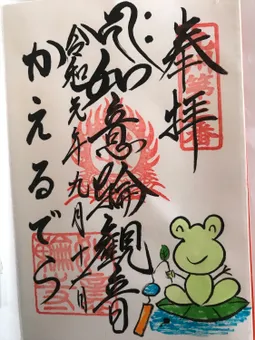 奉拝
如意輪観音
令和元年九月十二日
かえるでら